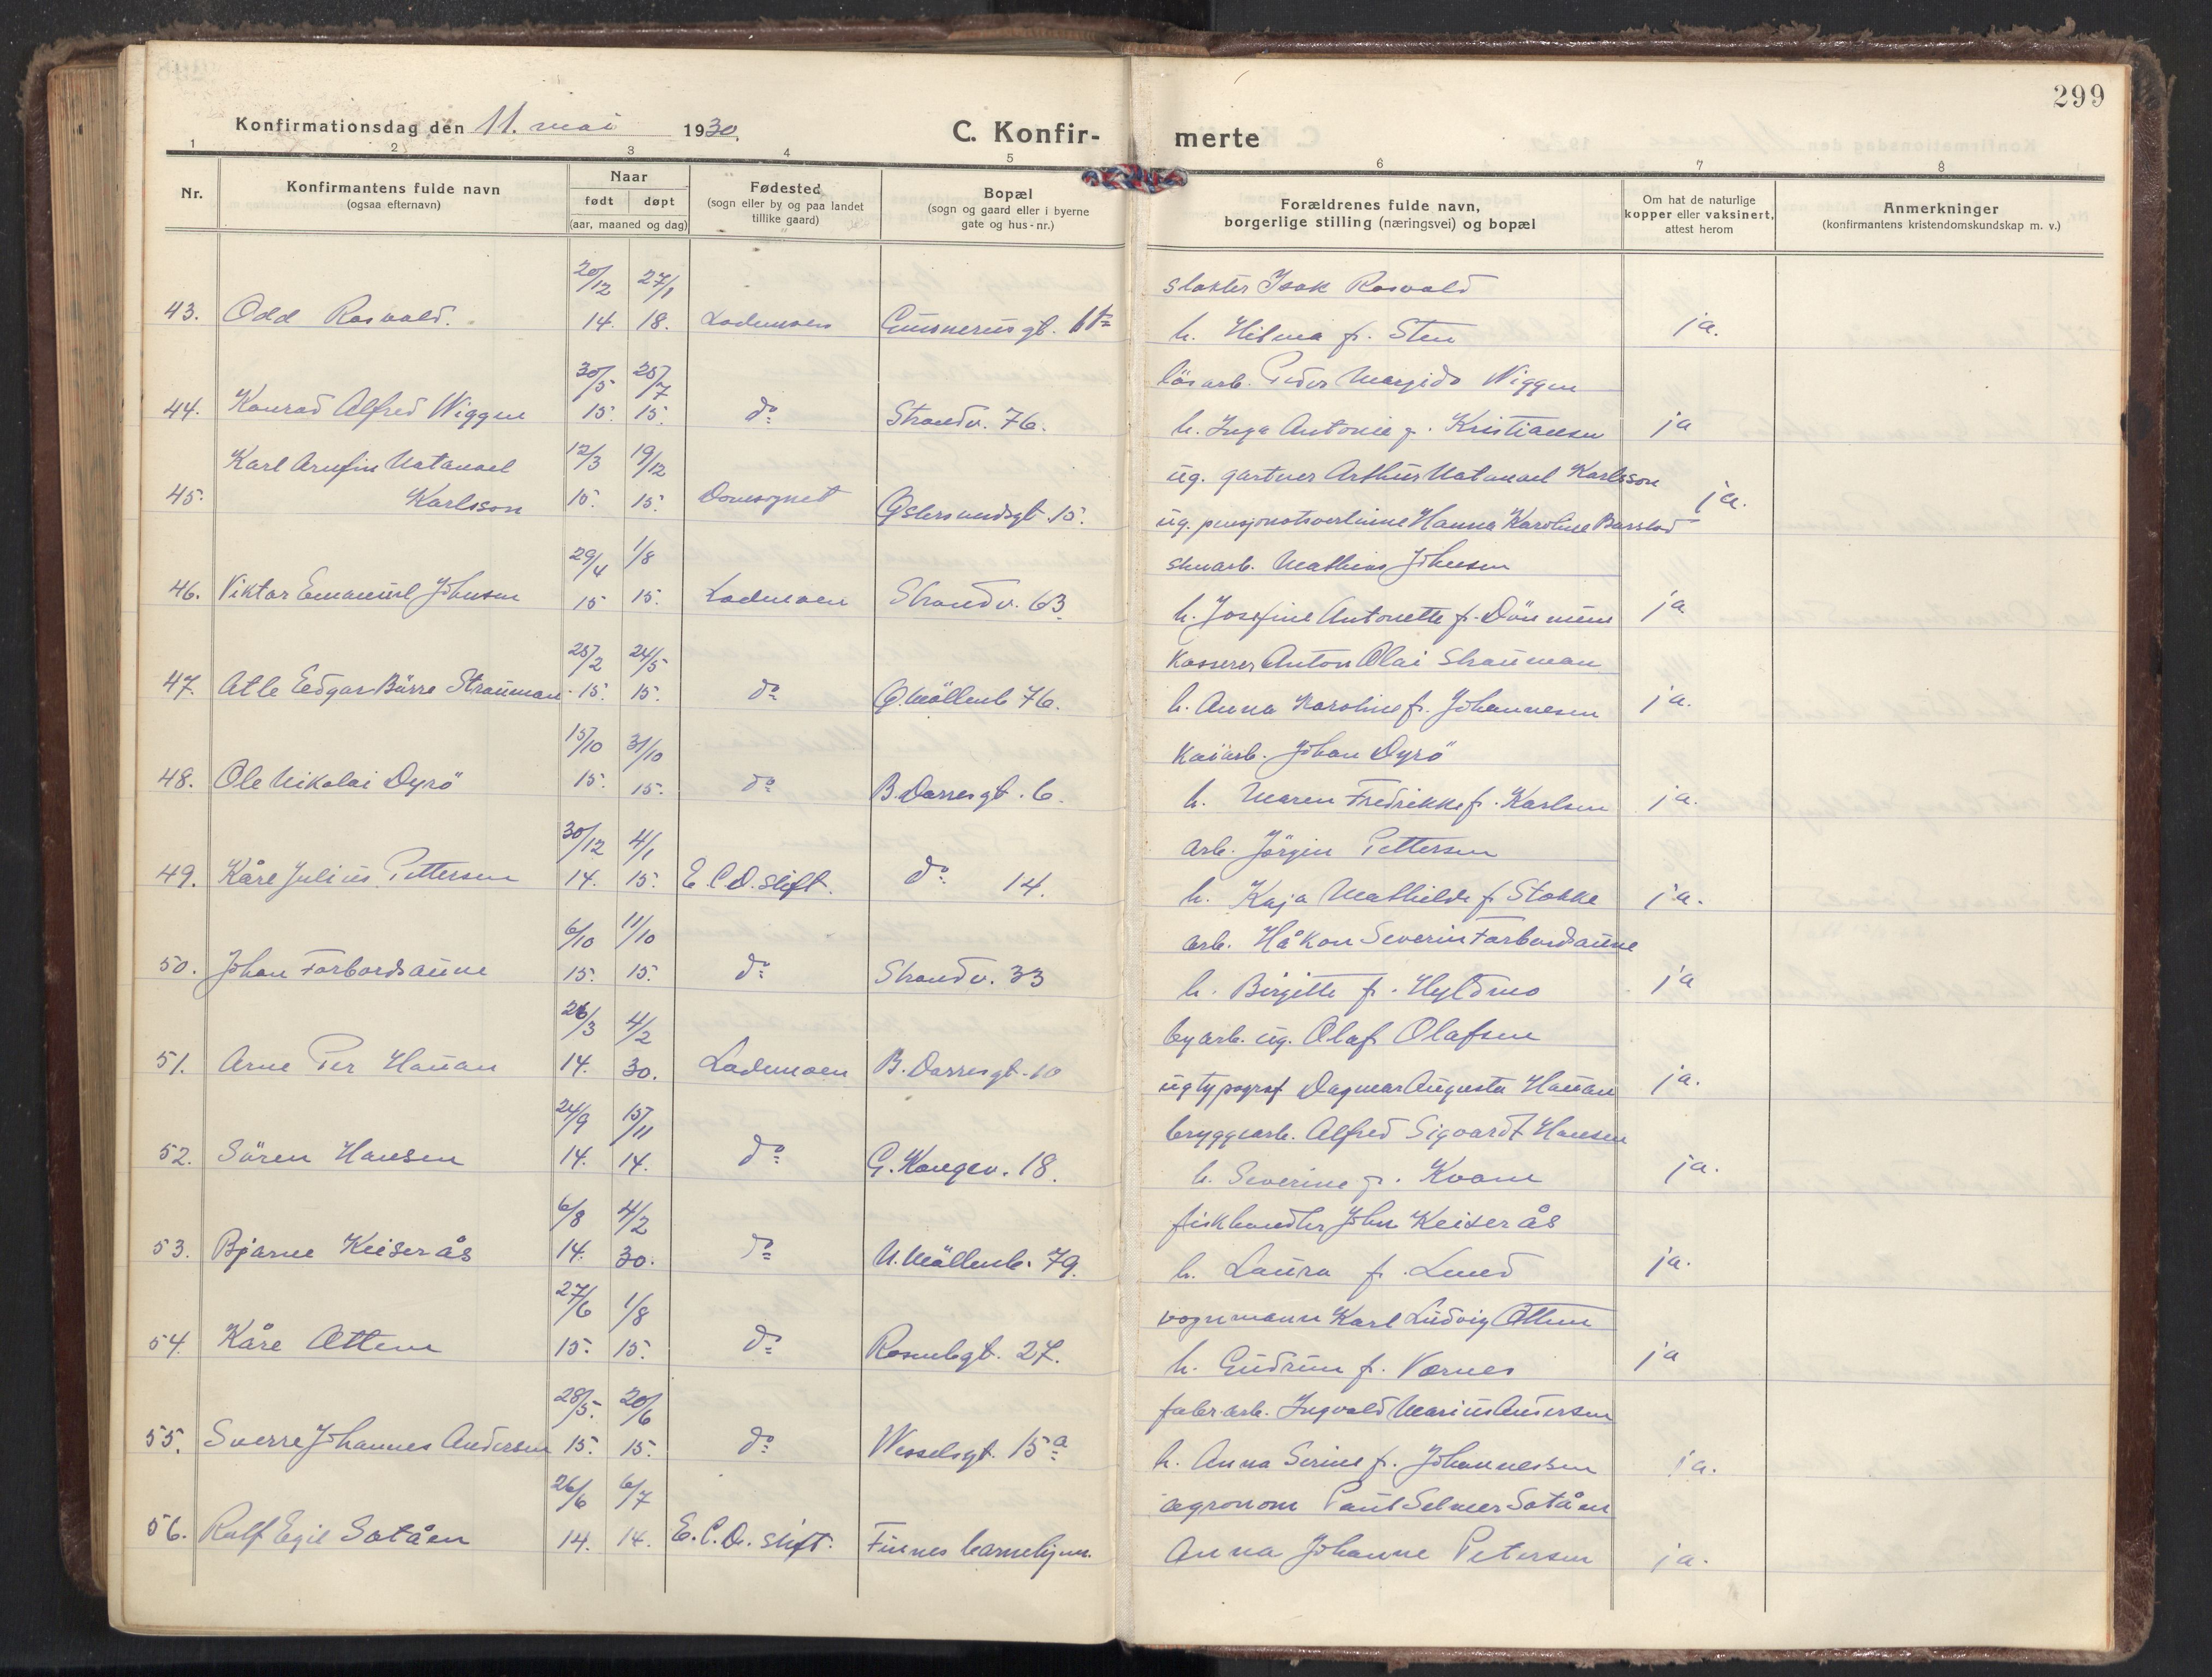 299
Konfirmationsdag den 11. mai 1930.
C. Konfir- merte
1 2 3 4 5 6 7 8
Nr.
Konfirmantens fulde navn
(ogsaa efternavn)
Naar
født døpt
(aar, maaned og dag)
Fødested
(sogn eller by og paa landet
tillike gaard)
Bopæl
(sogn og gaard eller i byerne
gate og hus-nr.)
Forældrenes fulde navn,
borgerlige stilling (næringsvei) og bopæl
Om hat de naturlige
kopper eller vaksinert,
attest herom
Anmerkninger
(konfirmantens kristendomskundskap m. v.)
20/12 27/1 slakter Isak Rosvold
43. Odd Rosvold. 14. 18. Lademoen Gunnerusgt. h. Hilma f. Sten ja.
30/5 25/7 løsarb. Peder Wiggen
44. Konrad Alfred Wiggen 15. 15. do Strandv. 76. h. Inga Antonie f. Kristiansen ja
Karl Arnfin Natanael 12/3 19/12 ug. gartner Arthur Natanael Karlsson
45. Karlsson 15. 15. Domsognet Østersundsgt. 15. ug. Hanna Karoline ja.
29/4 1/8 Mathias Johnsen
46. Viktor Emanuel Johnsen 15 15. Lademoen Strandv. 63. h. Josefine Antonette f. ja
25/2 24/5 Kasserer Anton Olai Strauman
47. Atle Edgar Börre Strauman 15. 15. do Ø. Möllenb. 76. h. Anna Karoline f. Johannesen ja.
15/10 31/10 Kaiarb. Johan Dyrö
48. Ole Nikolai Dyrö 15. 15. do B. Darresgt. 6. h. Maren Fredrikke f. Karlsen ja.
30/12 4/1 arb. Jörgen Pettersen
49. Kåre Julius Pettersen 14. 15. E.C.D. stift. do 14. h. Kaja Mathilde f. Stokke ja.
6/10 11/10 arb. Håkon Severin Forbordsaune
50. Johan Forbordsaune 15. 15. do Strandv. 33 h. Birgitte f. Hyldmo ja
26/3 4/2 byarb. ug. Olaf Olafsen
51. Arne Per Hauan 14. 30. Lademoen B. Darresgt. 10 ug typograf Dagmar Augusta Hauan ja.
24/9 15/11 bryggearb. Alfred Sigvardt Hansen
52. Sören Hansen 14. 14. do G. Kongev. 18. h. Severine f. Kvam ja.
6/8 4/2 fiskhandler John Keiserås
53. Bjarne Keiserås 14. 30. do N. Möllenb. 79. h. Laura f. Lund ja.
27/6 1/8 vognmann Karl Ludvig Ottem
54. Kåre Ottem 15. 15. do Rosenbgt. 27. h. Gudrun f. Værnes ja
28/5. 20/6 fabr.arb. Ingvald Marius Andersen
55. Sverre Johannes Andersen 15. 15. do Wesselsgt. 15a h. Anna Serine f. Johannessen ja.
26/6 6/7 agronom Paul Selmer Satåen
56. Rolf Egil Satåen 14. 14. E.C.D. stift. Finnes barnehjem. Anna Johanne Petersen ja.